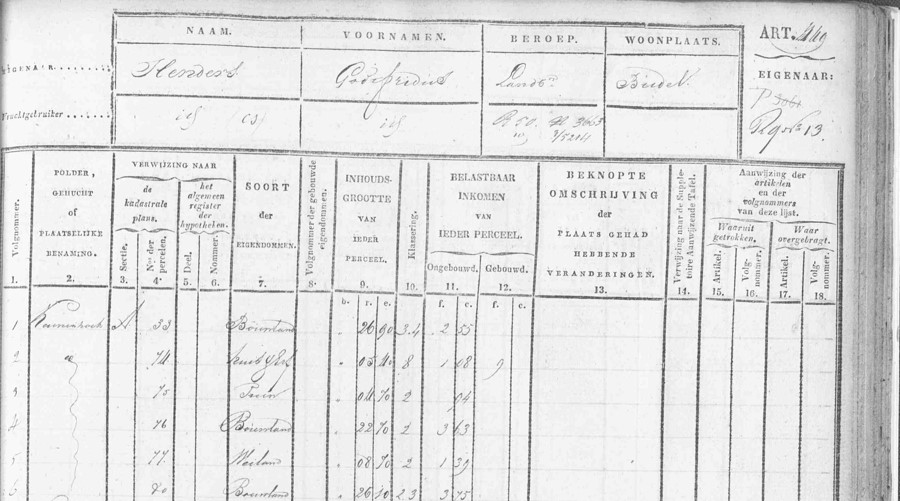 NAAM. VOORNAMEN. BEROEP. WOONPLAATS. ART. 440
EIGENAAR Henders Godefridus Landbr Budel EIGENAAR:
Vruchtgebruiker id id R 50. 3643
3/5204
13
Volgnommer.
POLDER, GEHUCHT of PLAATSELIJKE BENAMING.
VERWIJZING NAAR
de kadastrale plans.
het algemeen register der hypotheken.
Sectie.
Nos. der perceelen.
Deel.
Nommer.
SOORT der EIGENDOMMEN.
Volgnommer der gebouwde eigendommen.
INHOUDS-GROOTTE VAN IEDER PERCEEL.
Klassering.
BELASTBAAR INKOMEN VAN IEDER PERCEEL.
Ongebouwd. Gebouwd.
BEKNOPTE OMSCHRIJVING der PLAATS GEHAD HEBBENDE VERANDERINGEN.
Verwijzing naar de Suppletoire Aanwijzende Tafel.
Aanwijzing der artikelen en der volgnommers van deze lijst.
Waaruit getrokken. Waar overgebragt.
Artikel. Volg-nommer. Artikel. Volg-nommer.
1. 2. 3. 4. 5. 6. 7. 8. 9. 10. 11. 12. 13. 14. 15. 16. 17. 18.
b. r. e. f. c. f. c.
1 A 33 Bouwland " 26 90 3.4 2 55
2 74 huis & Erf " 05 40 8 1 08 9
3 75 Tuin " 04 70 2 94
4 76 Bouwland " 22 70 2 3 63
5 77 Weiland " 08 70 2 1 39
6 80 Bouwland " 26 2 3 3 75